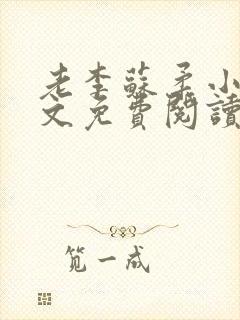 老李蘇柔小
文免費閱讀
笕一成